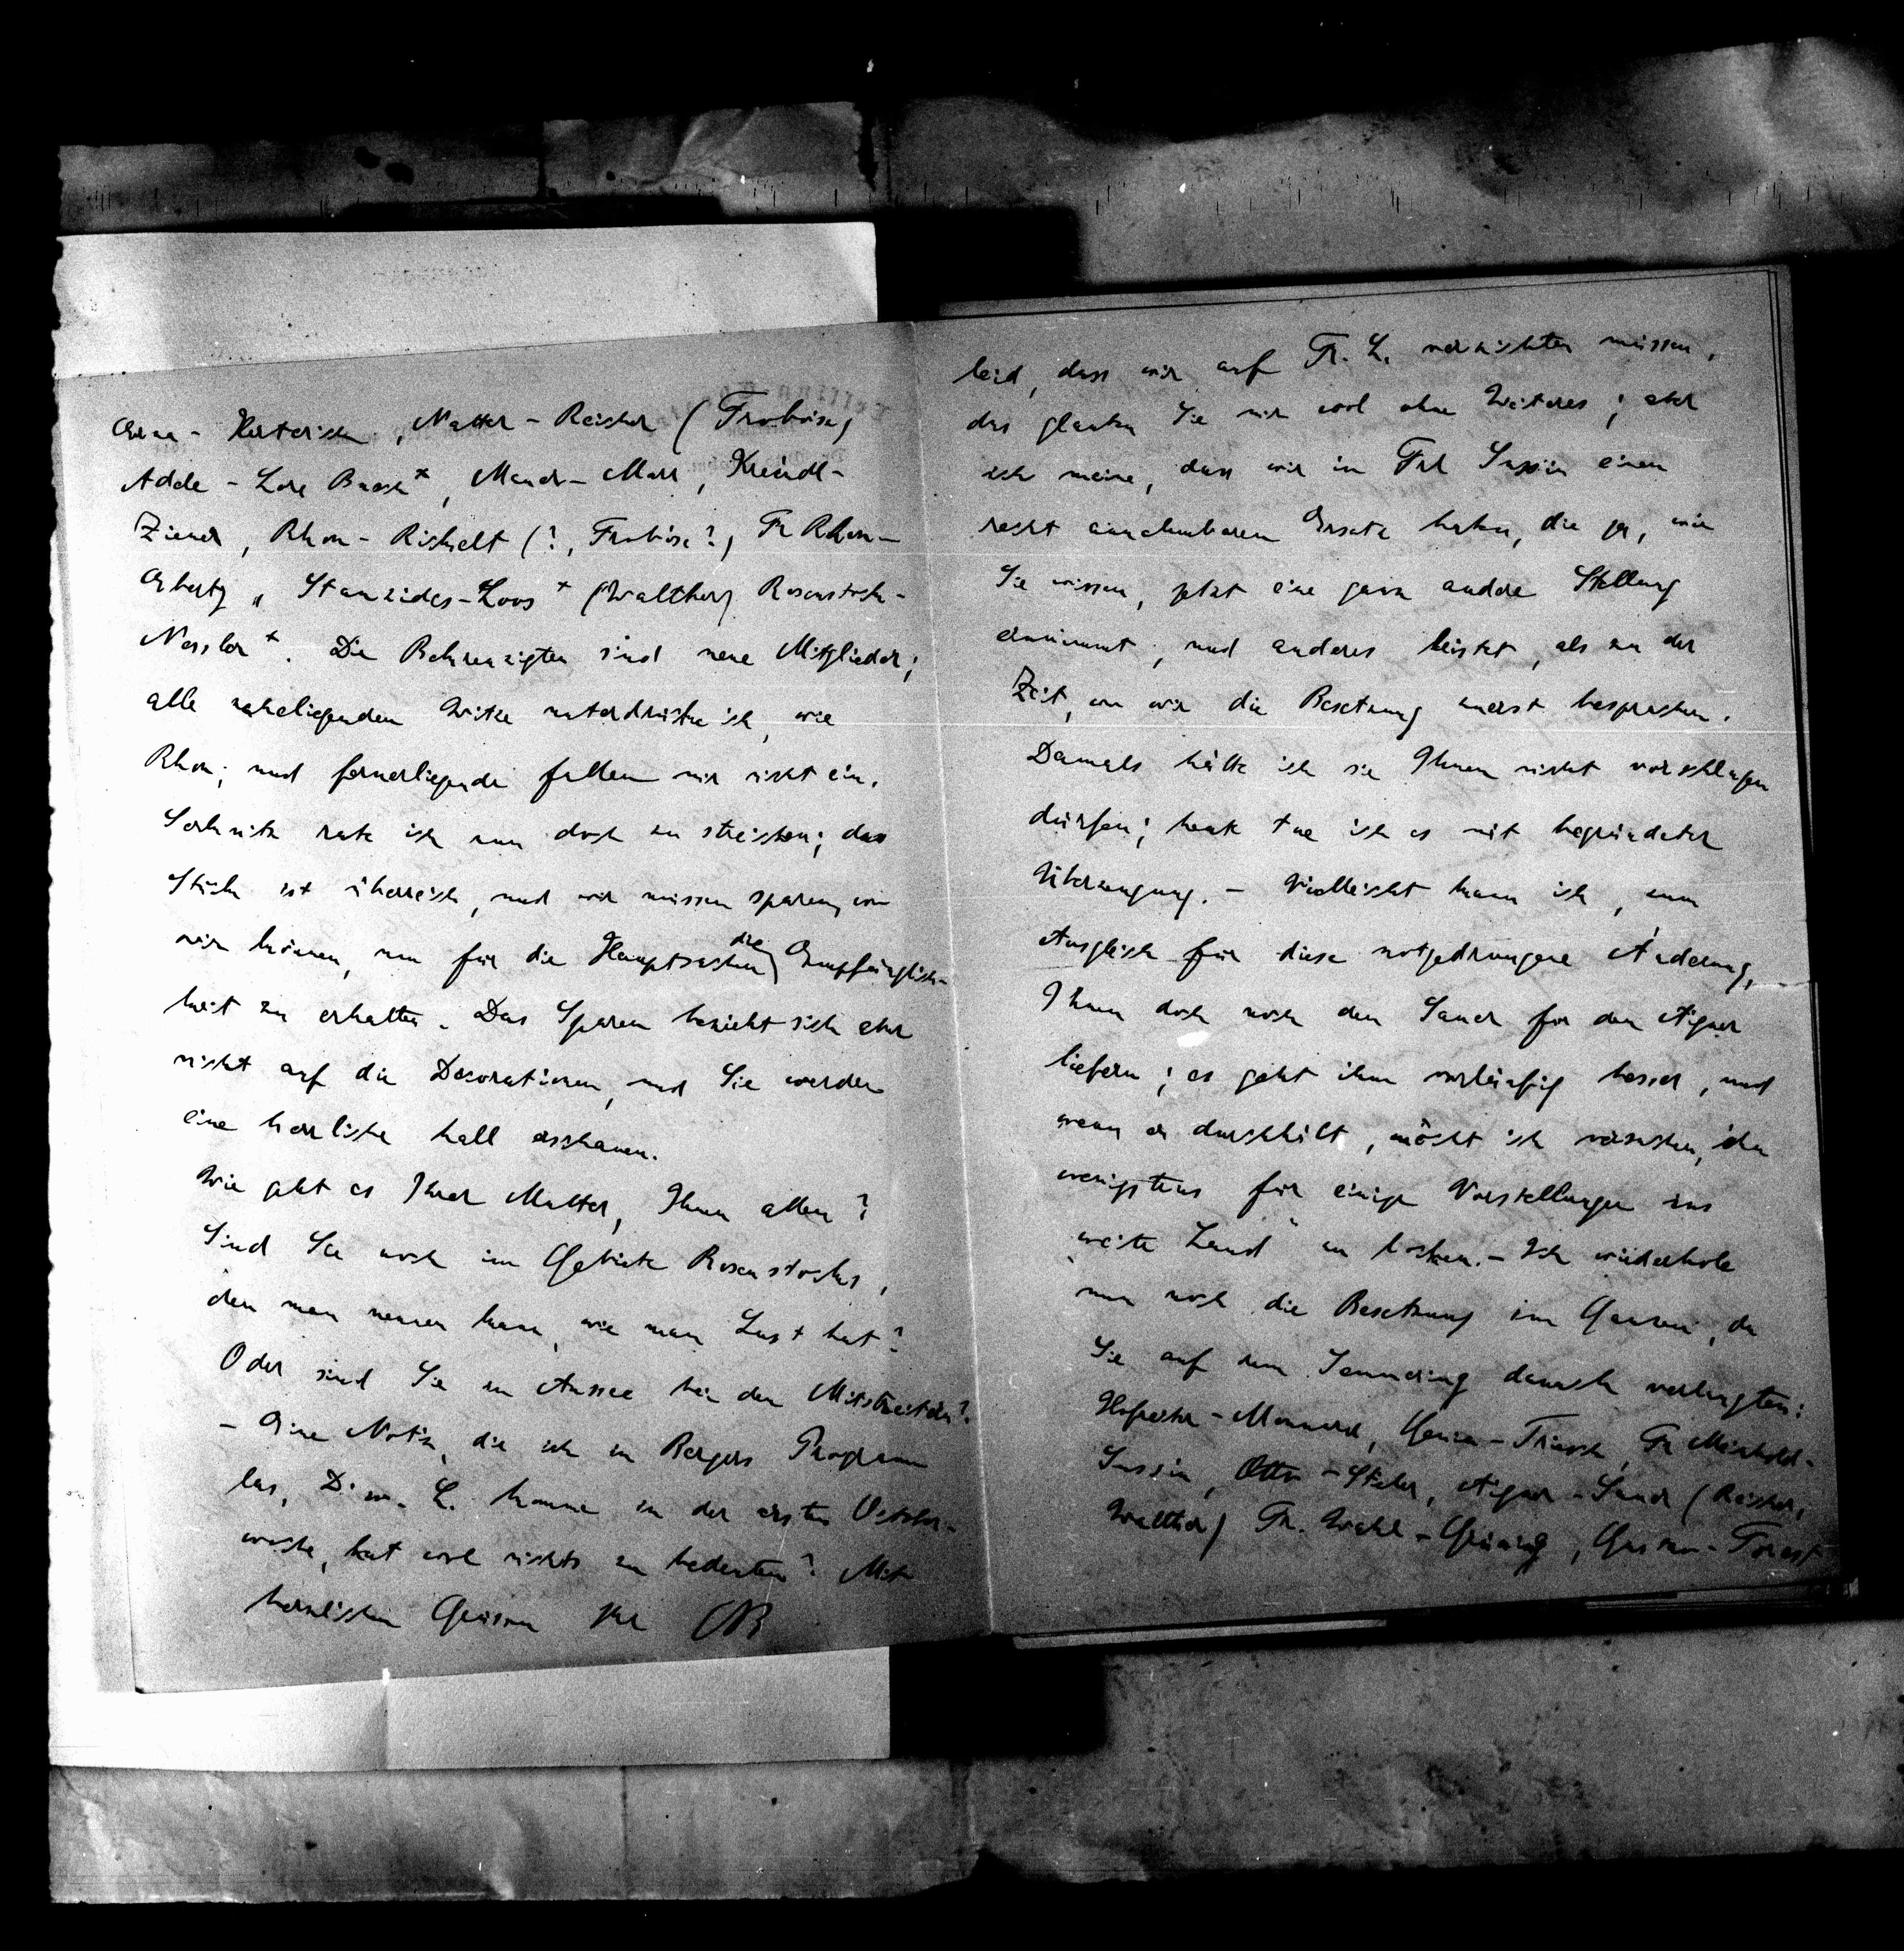 leid, dass wir auf Fr. L. verzichten müssen,
das glauben Sie mir wol ohne Weiteres; aber
ich meine, dass wir in Frl Sussin einen
recht annehmbaren Ersatz haben, die ja, wie
Sie wissen, jetzt eine ganz andre Stellung
einnimmt, und anderes leistet, als zu der
Zeit, wo wir die Besetzung zuerst besprachen.
Damals hätte ich sie Ihnen nicht vorschlagen
dürfen; heute tue ich es mit begründeter
Überzeugung. – Vielleicht kann ich, zum
Ausgleich für diese notgedrungene Änderung,
Ihnen doch noch den Sauer für den Aigner
liefern; es geht ihm vorläufig besser, und
wenn er durchhält, möcht ich versuchen, ihn
wenigstens für einige Vorstellungen ins
„weite Land“ zu locken. – Ich wiederhole
nun noch die Besetzung im Ganzen, da
Sie auf dem Semmering danach verlangten:
Hofreiter – Monnard, Genia – Triesch, Fr Meinhold-
Sussin, Otto – Stieler, Aigner – Sauer (Reicher,
Walther) Fr. Wahl – Grüning, Gustav – Forest
Erna – Herterich, Natter – Reicher (Froböse)
Adele – Lore Busch +, Mauer – Marr, Kreindl –
Ziener, Rhon – Rickelt (?, Froböse?) Fr Rhon –
Erbertz, Stanzides – Loos + (Walther) Rosenstock –
Nessler +. Die Bekreuzigten sind neue Mitglieder;
alle naheliegenden Witze unterdrücke ich, wie
Rhon; und fernerliegende fallen mir nicht ein.
Serknitz rate ich nun doch zu streichen; das
Stück ist überreich, und wir müssen sparen, wo
wir können, um für die Hauptsachen die Empfänglich-
keit zu erhalten. Das Sparen bezieht sich aber
nicht auf die Decorationen, und Sie werden
eine herrliche Hall erschauen.
Wie geht es Ihrer Mutter, Ihnen allen?
Sind Sie noch im Gebiete Rosenstocks,
den man nennen kann, wie man Lust hat?
Oder sind Sie in Aussee bei den Mitstreitern?
– Eine Notiz, die ich in Bergers Programm
las, D. w. L. komme in der ersten October-
woche, hat wol nichts zu bedeuten? Mit
herzlichen Grüssen Ihr OB